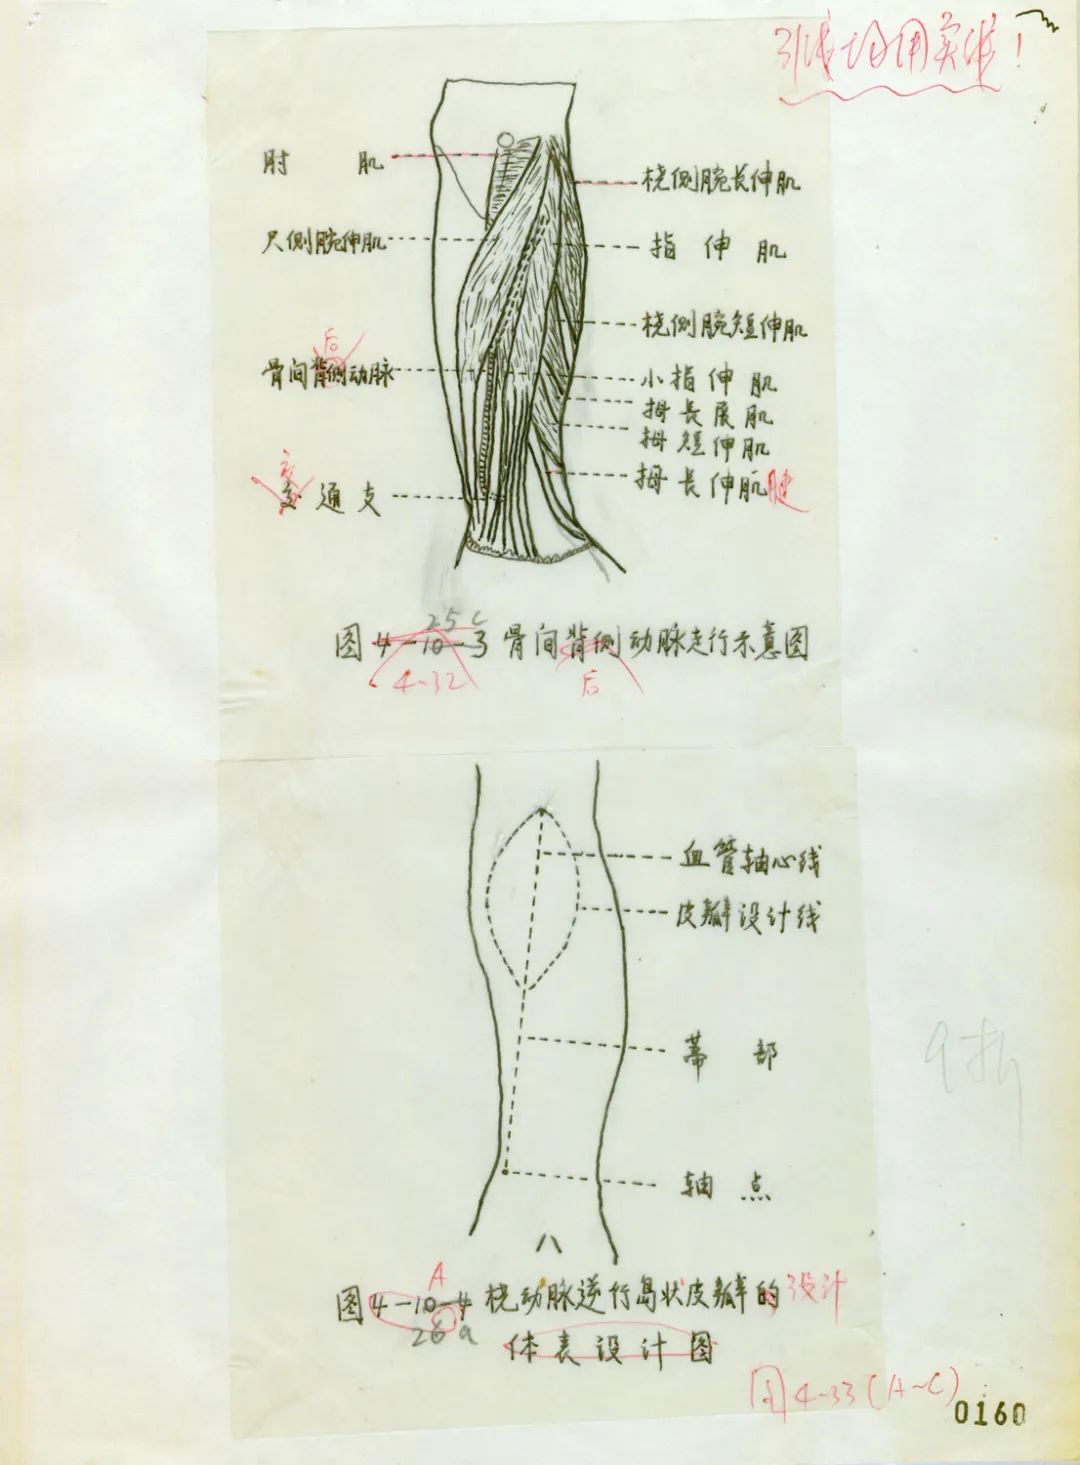 引线均用实线！
肘 肌
桡侧腕长伸肌
尺侧腕伸肌
指 伸 肌
桡侧腕短伸肌
后
骨间背侧动脉
小指伸肌
拇长展肌
拇短伸肌
拇长伸肌腱
交
交通支
25 C
图4-10-3 骨间背侧动脉走行示意图
4-32
后
血管轴心线
皮瓣设计线
蒂 部
轴 点
A
图4-10-4 桡动脉逆行岛状皮瓣的设计
28 a
体表设计图
图4-33(A~C)
0160